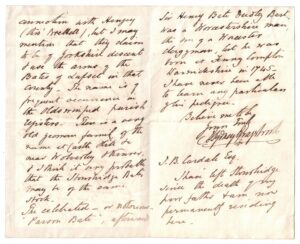 connection with Hengey
(his Brettell), but I may
mention that they claim
to be of Yorkshire descent
& use the arms of the
Bates of Lupset in that
County. The name is of
frequent occurrence in
the Kidderminster parish
registers. There is a very
old yeoman family of the
name at Castle
near Wolverley & Kinver,
& I think it very probable
that the Stourbridge Bate
may be of the same
stock.
The celebrated — or notorious
"Parson Bate", afterward
Sir Henry Bate Dudley Bart
was a Worcestershire man
the son of a Worcester
clergyman, but he was
born at Fenny Compton
Warwickshire in 1745.
I have never been able
to learn any particulars
of his pedigree.
Believe me to be
Yours truly
H Sydney Grazebrook
J. B. Cardale Esq.
I have left Stourbridge
since the death of my
poor father & am now
permanently residing
here.